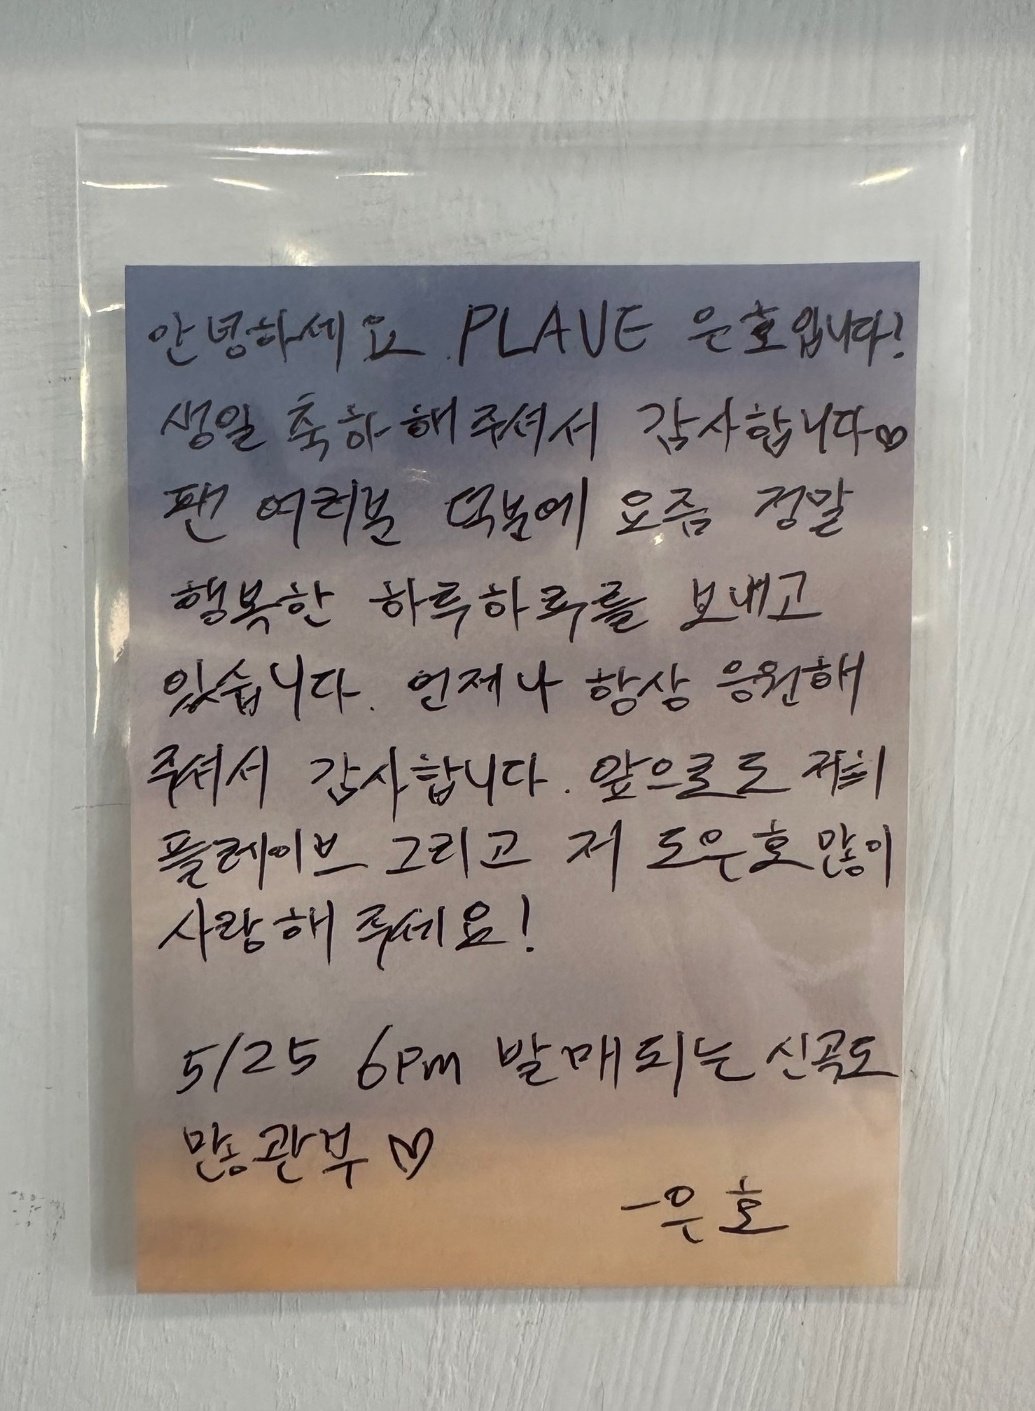 안녕하세요 PLAVE 은호입니다!
생일 축하해주셔서 감사합니다♡
팬 여러분 덕분에 요즘 정말
행복한 하루하루를 보내고
있습니다. 언제나 항상 응원해
주셔서 감사합니다. 앞으로도 저희
플레이브 그리고 저 도은호 많이
사랑해 주세요!
5/25 6pm 발매되는 신곡도
많관부 ♡
-은호